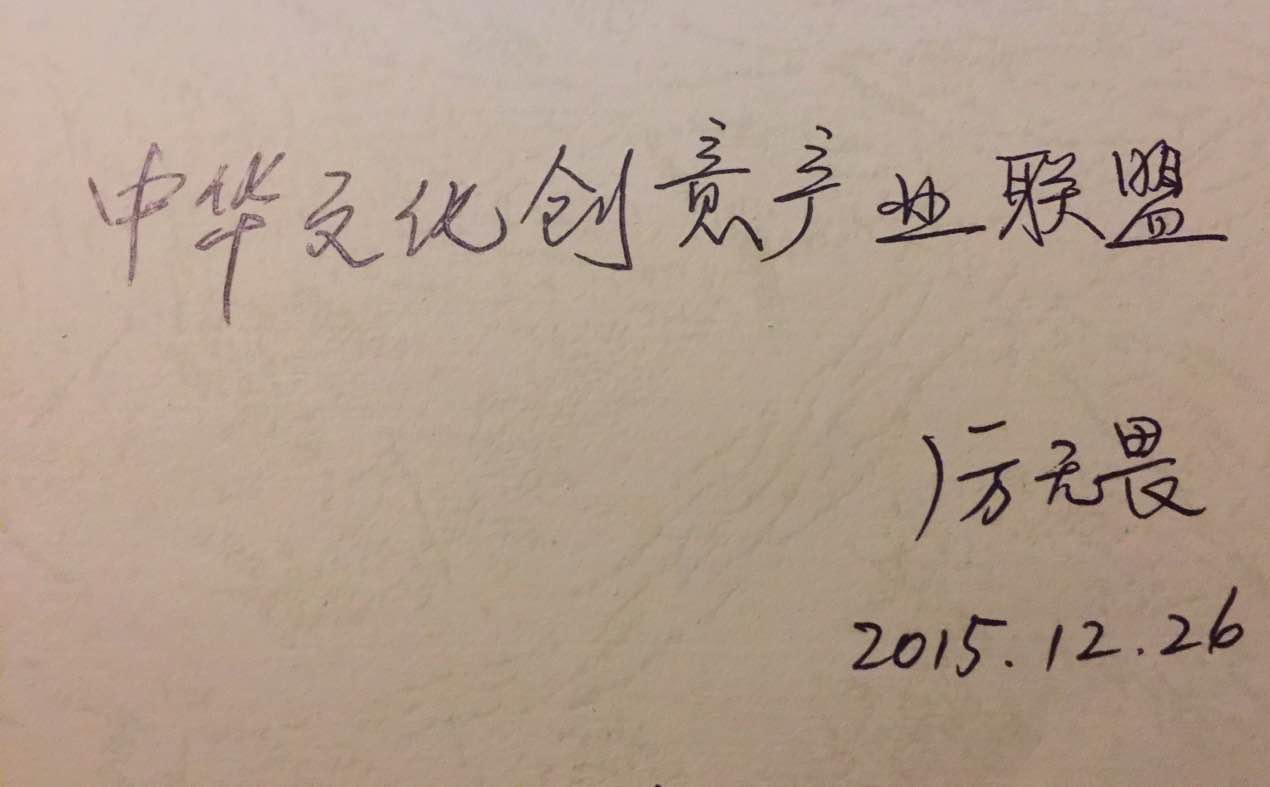 中华文化创意产业联盟
厉无畏
2015.12.26